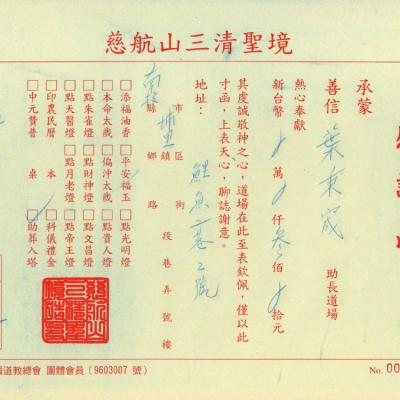 慈航山三清聖境
承蒙
善信 葉東宬 助長道場
熱心奉獻
新台幣 萬 仟叁佰 拾元
其虔誠敬神之心，道場在此至表欽佩，僅以此
寸函，上表天心，聊誌謝意。
地址：
南投縣市 埔里鄉鎮區 鯉魚二巷2號 路街 段 巷 弄 號 樓
□添福油香 □平安福玉 □點光明燈
□本命太歲 □偏沖太歲 □點貴人燈
□點朱雀燈 □點財神燈 □點文昌燈
□點天醫燈 □點月老燈 □點帝王燈
□印農民曆 □科儀禮金
□中元贊普 桌 □助葬入塔
道教總會 團體會員（9603007 號）
No. 00